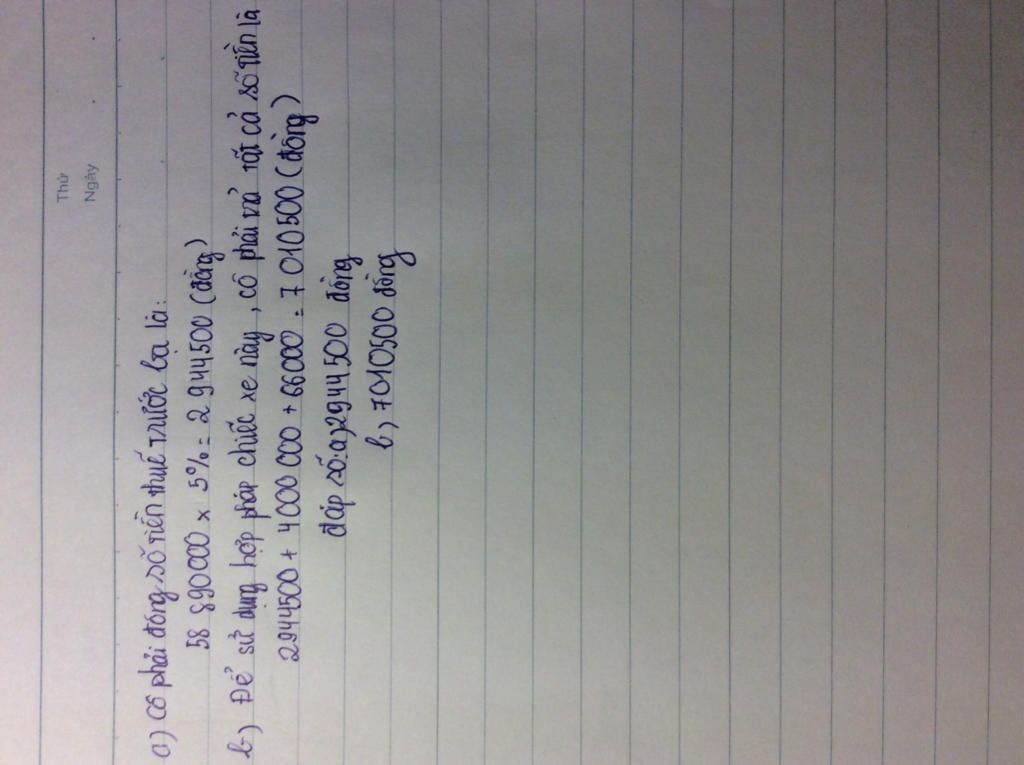 Thứ
Ngày
a) Cô phải đóng số tiền thuế trước bạ là:
58 890000 x 5% = 2 944500 (đồng)
b) Để sử dụng hợp pháp chiếc xe này, cô phải trả tất cả số tiền là
2944500 + 4 000 000 + 66000 = 7 010 500 (đồng)
đáp số: a, 2944 500 đồng
b, 7010500 đồng